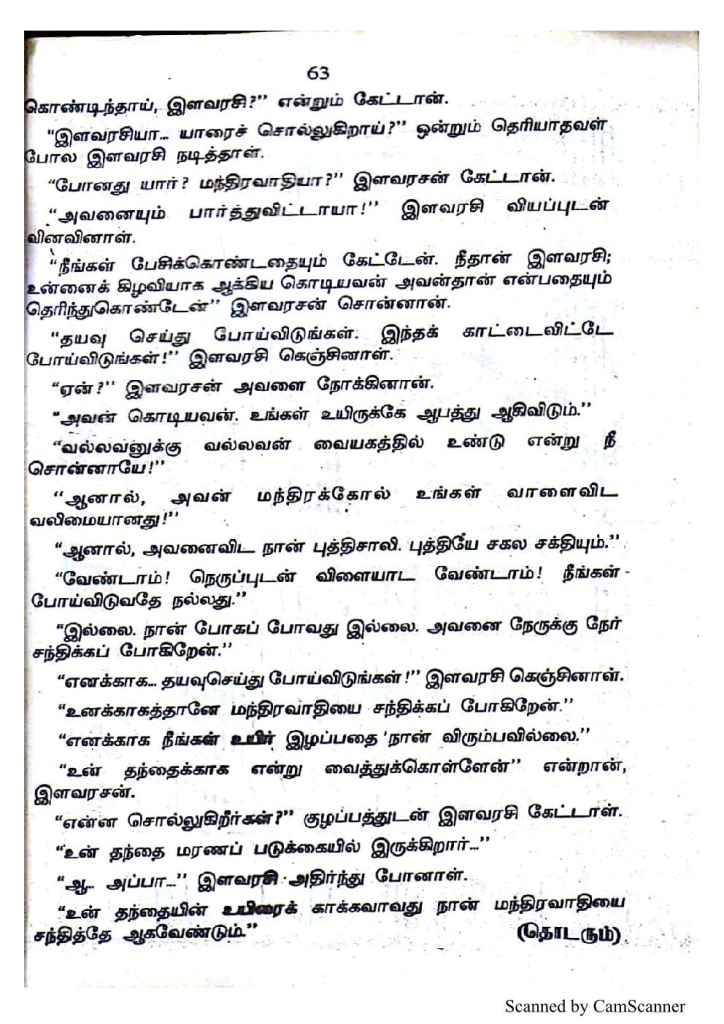 63
கொண்டிந்தாய், இளவரசி?” என்றும் கேட்டான்.
“இளவரசியா... யாரைச் சொல்லுகிறாய்?” ஒன்றும் தெரியாதவள்
போல இளவரசி நடித்தாள்.
“போனது யார்? மந்திரவாதியா?” இளவரசன் கேட்டான்.
“அவனையும் பார்த்துவிட்டாயா!” இளவரசி வியப்புடன்
வினவினாள்.
“நீங்கள் பேசிக்கொண்டதையும் கேட்டேன். நீதான் இளவரசி;
உன்னைக் கிழவியாக ஆக்கிய கொடியவன் அவன்தான் என்பதையும்
தெரிந்துகொண்டேன்” இளவரசன் சொன்னான்.
“தயவு செய்து போய்விடுங்கள். இந்தக் காட்டைவிட்டே
போய்விடுங்கள்!” இளவரசி கெஞ்சினாள்.
“ஏன்?” இளவரசன் அவளை நோக்கினான்.
“அவன் கொடியவன். உங்கள் உயிருக்கே ஆபத்து ஆகிவிடும்.”
“வல்லவனுக்கு வல்லவன் வையகத்தில் உண்டு என்று நீ
சொன்னாயே!”
“ஆனால், அவன் மந்திரக்கோல் உங்கள் வாளைவிட
வலிமையானது!”
“ஆனால், அவனைவிட நான் புத்திசாலி. புத்தியே சகல சக்தியும்.”
“வேண்டாம்! நெருப்புடன் விளையாட வேண்டாம்! நீங்கள்
போய்விடுவதே நல்லது.”
“இல்லை. நான் போகப் போவது இல்லை. அவனை நேருக்கு நேர்
சந்திக்கப் போகிறேன்.”
“எனக்காக... தயவுசெய்து போய்விடுங்கள்!” இளவரசி கெஞ்சினாள்.
“உனக்காகத்தானே மந்திரவாதியை சந்திக்கப் போகிறேன்.”
“எனக்காக நீங்கள் உயிர் இழப்பதை நான் விரும்பவில்லை.”
“உன் தந்தைக்காக என்று வைத்துக்கொள்ளேன்” என்றான்,
இளவரசன்.
“என்ன சொல்லுகிறீர்கள்?” குழப்பத்துடன் இளவரசி கேட்டாள்.
“உன் தந்தை மரணப் படுக்கையில் இருக்கிறார்...”
“ஆ... அப்பா...” இளவரசி அதிர்ந்து போனாள்.
“உன் தந்தையின் உயிரைக் காக்கவாவது நான் மந்திரவாதியை
சந்தித்தே ஆகவேண்டும்.” (தொடரும்)
Scanned by CamScanner